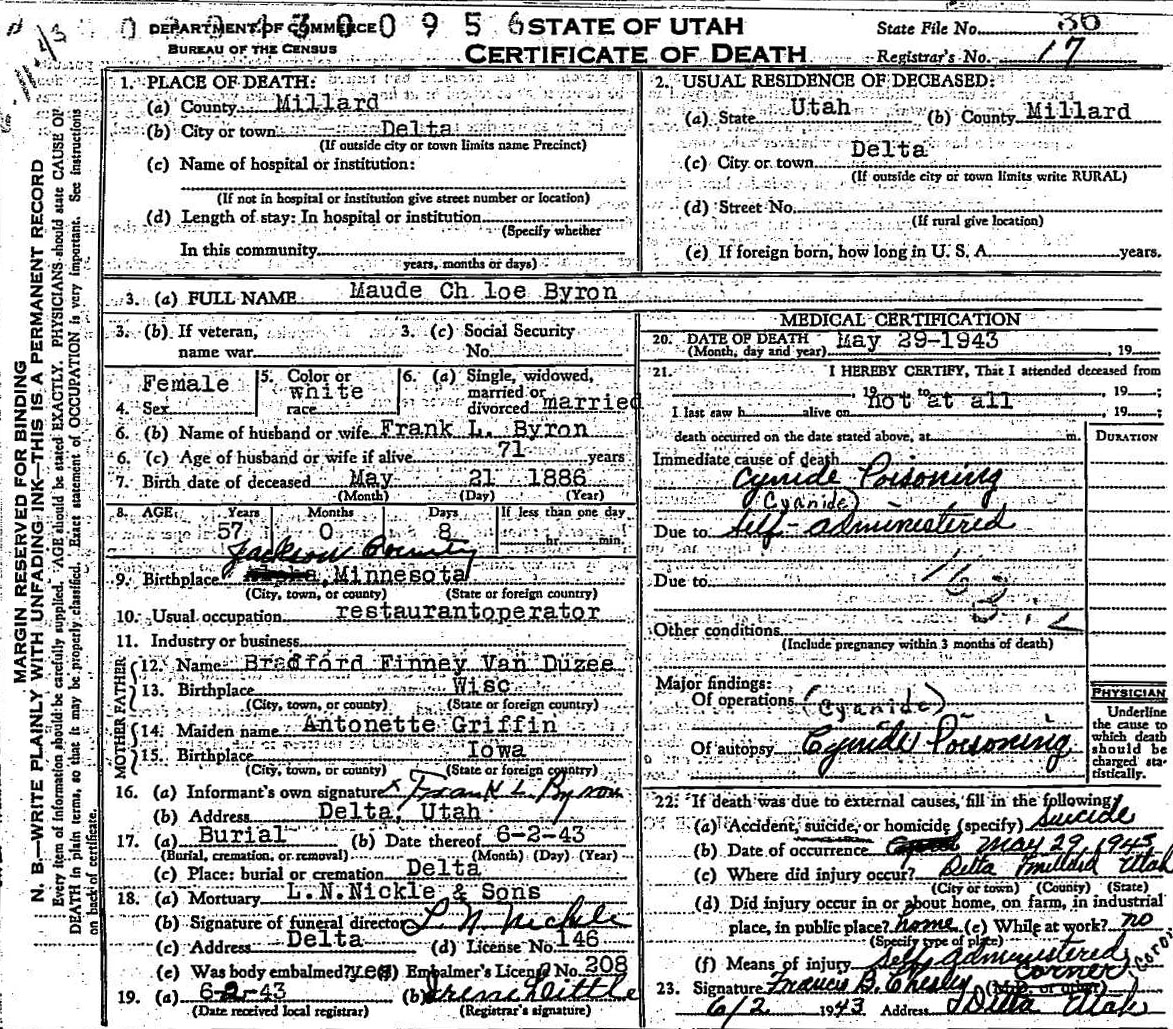 DEPARTMENT OF COMMERCE 0 9 5 6 STATE OF UTAH State File No. 36
BUREAU OF THE CENSUS CERTIFICATE OF DEATH Registrar's No. 17
MARGIN RESERVED FOR BINDING
N. B.—WRITE PLAINLY WITH UNFADING INK—THIS IS A PERMANENT RECORD
Every item of information should be carefully supplied. AGE should be stated EXACTLY. PHYSICIANS should state CAUSE OF
DEATH in plain terms, so that it may be properly classified. Exact statement of OCCUPATION is very important. See instructions
on back of certificate.
1. PLACE OF DEATH:
(a) County Millard
(b) City or town Delta
(If outside city or town limits name Precinct)
(c) Name of hospital or institution:
(If not in hospital or institution give street number or location)
(d) Length of stay: In hospital or institution
(Specify whether
In this community
years, months or days)
2. USUAL RESIDENCE OF DECEASED:
(a) State Utah (b) County Millard
(c) City or town Delta
(If outside city or town limits write RURAL)
(d) Street No.
(If rural give location)
(e) If foreign born, how long in U. S. A. years.
3. (a) FULL NAME Maude Ch loe Byron
3. (b) If veteran, 3. (c) Social Security
name war No.
4. Sex Female 5. Color or race white 6. (a) Single, widowed, married or divorced married
6. (b) Name of husband or wife Frank L. Byron
6. (c) Age of husband or wife if alive 71 years
7. Birth date of deceased May 21 1886
(Month) (Day) (Year)
8. AGE: Years Months Days If less than one day
57 0 8 hr. min.
Jackson County
9. Birthplace Minnesota
(City, town, or county) (State or foreign country)
10. Usual occupation restaurantoperator
11. Industry or business
FATHER
12. Name Bradford Finney Van Duzee
13. Birthplace Wisc
(City, town, or county) (State or foreign country)
MOTHER
14. Maiden name Antonette Griffin
15. Birthplace Iowa
(City, town, or county) (State or foreign country)
16. (a) Informant's own signature Frank L. Byron
(b) Address Delta, Utah
17. (a) Burial (b) Date thereof 6-2-43
(Burial, cremation, or removal) (Month) (Day) (Year)
(c) Place: burial or cremation Delta
18. (a) Mortuary L.N.Nickle & Sons
(b) Signature of funeral director L. N. Nickle
(c) Address Delta (d) License No. 146
(e) Was body embalmed? yes (f) Embalmer's License No. 208
19. (a) 6-2-43 (b)
(Date received local registrar) (Registrar's signature)
MEDICAL CERTIFICATION
20. DATE OF DEATH May 29-1943
(Month, day and year) , 19
21. I HEREBY CERTIFY, That I attended deceased from
, 19 to , 19 ;
I last saw h alive on not at all , 19 ;
death occurred on the date stated above, at m. DURATION
Immediate cause of death
Cynide Poisoning
(Cyanide)
Due to self-administered
Due to
Other conditions
(Include pregnancy within 3 months of death)
Major findings:
Of operations (Cyanide)
Of autopsy Cynide Poisoning
PHYSICIAN
Underline
the cause to
which death
should be
charged sta-
tistically.
22. If death was due to external causes, fill in the following:
(a) Accident, suicide, or homicide (specify) Suicide
(b) Date of occurrence May 29, 1943
(c) Where did injury occur? Delta Millard Utah
(City or town) (County) (State)
(d) Did injury occur in or about home, on farm, in industrial
place, in public place? home (e) While at work? no
(Specify type of place)
(f) Means of injury Self administered
Corner
23. Signature Francis B. Chesley (M.D. or other)
6/2 1943 Address Delta Utah